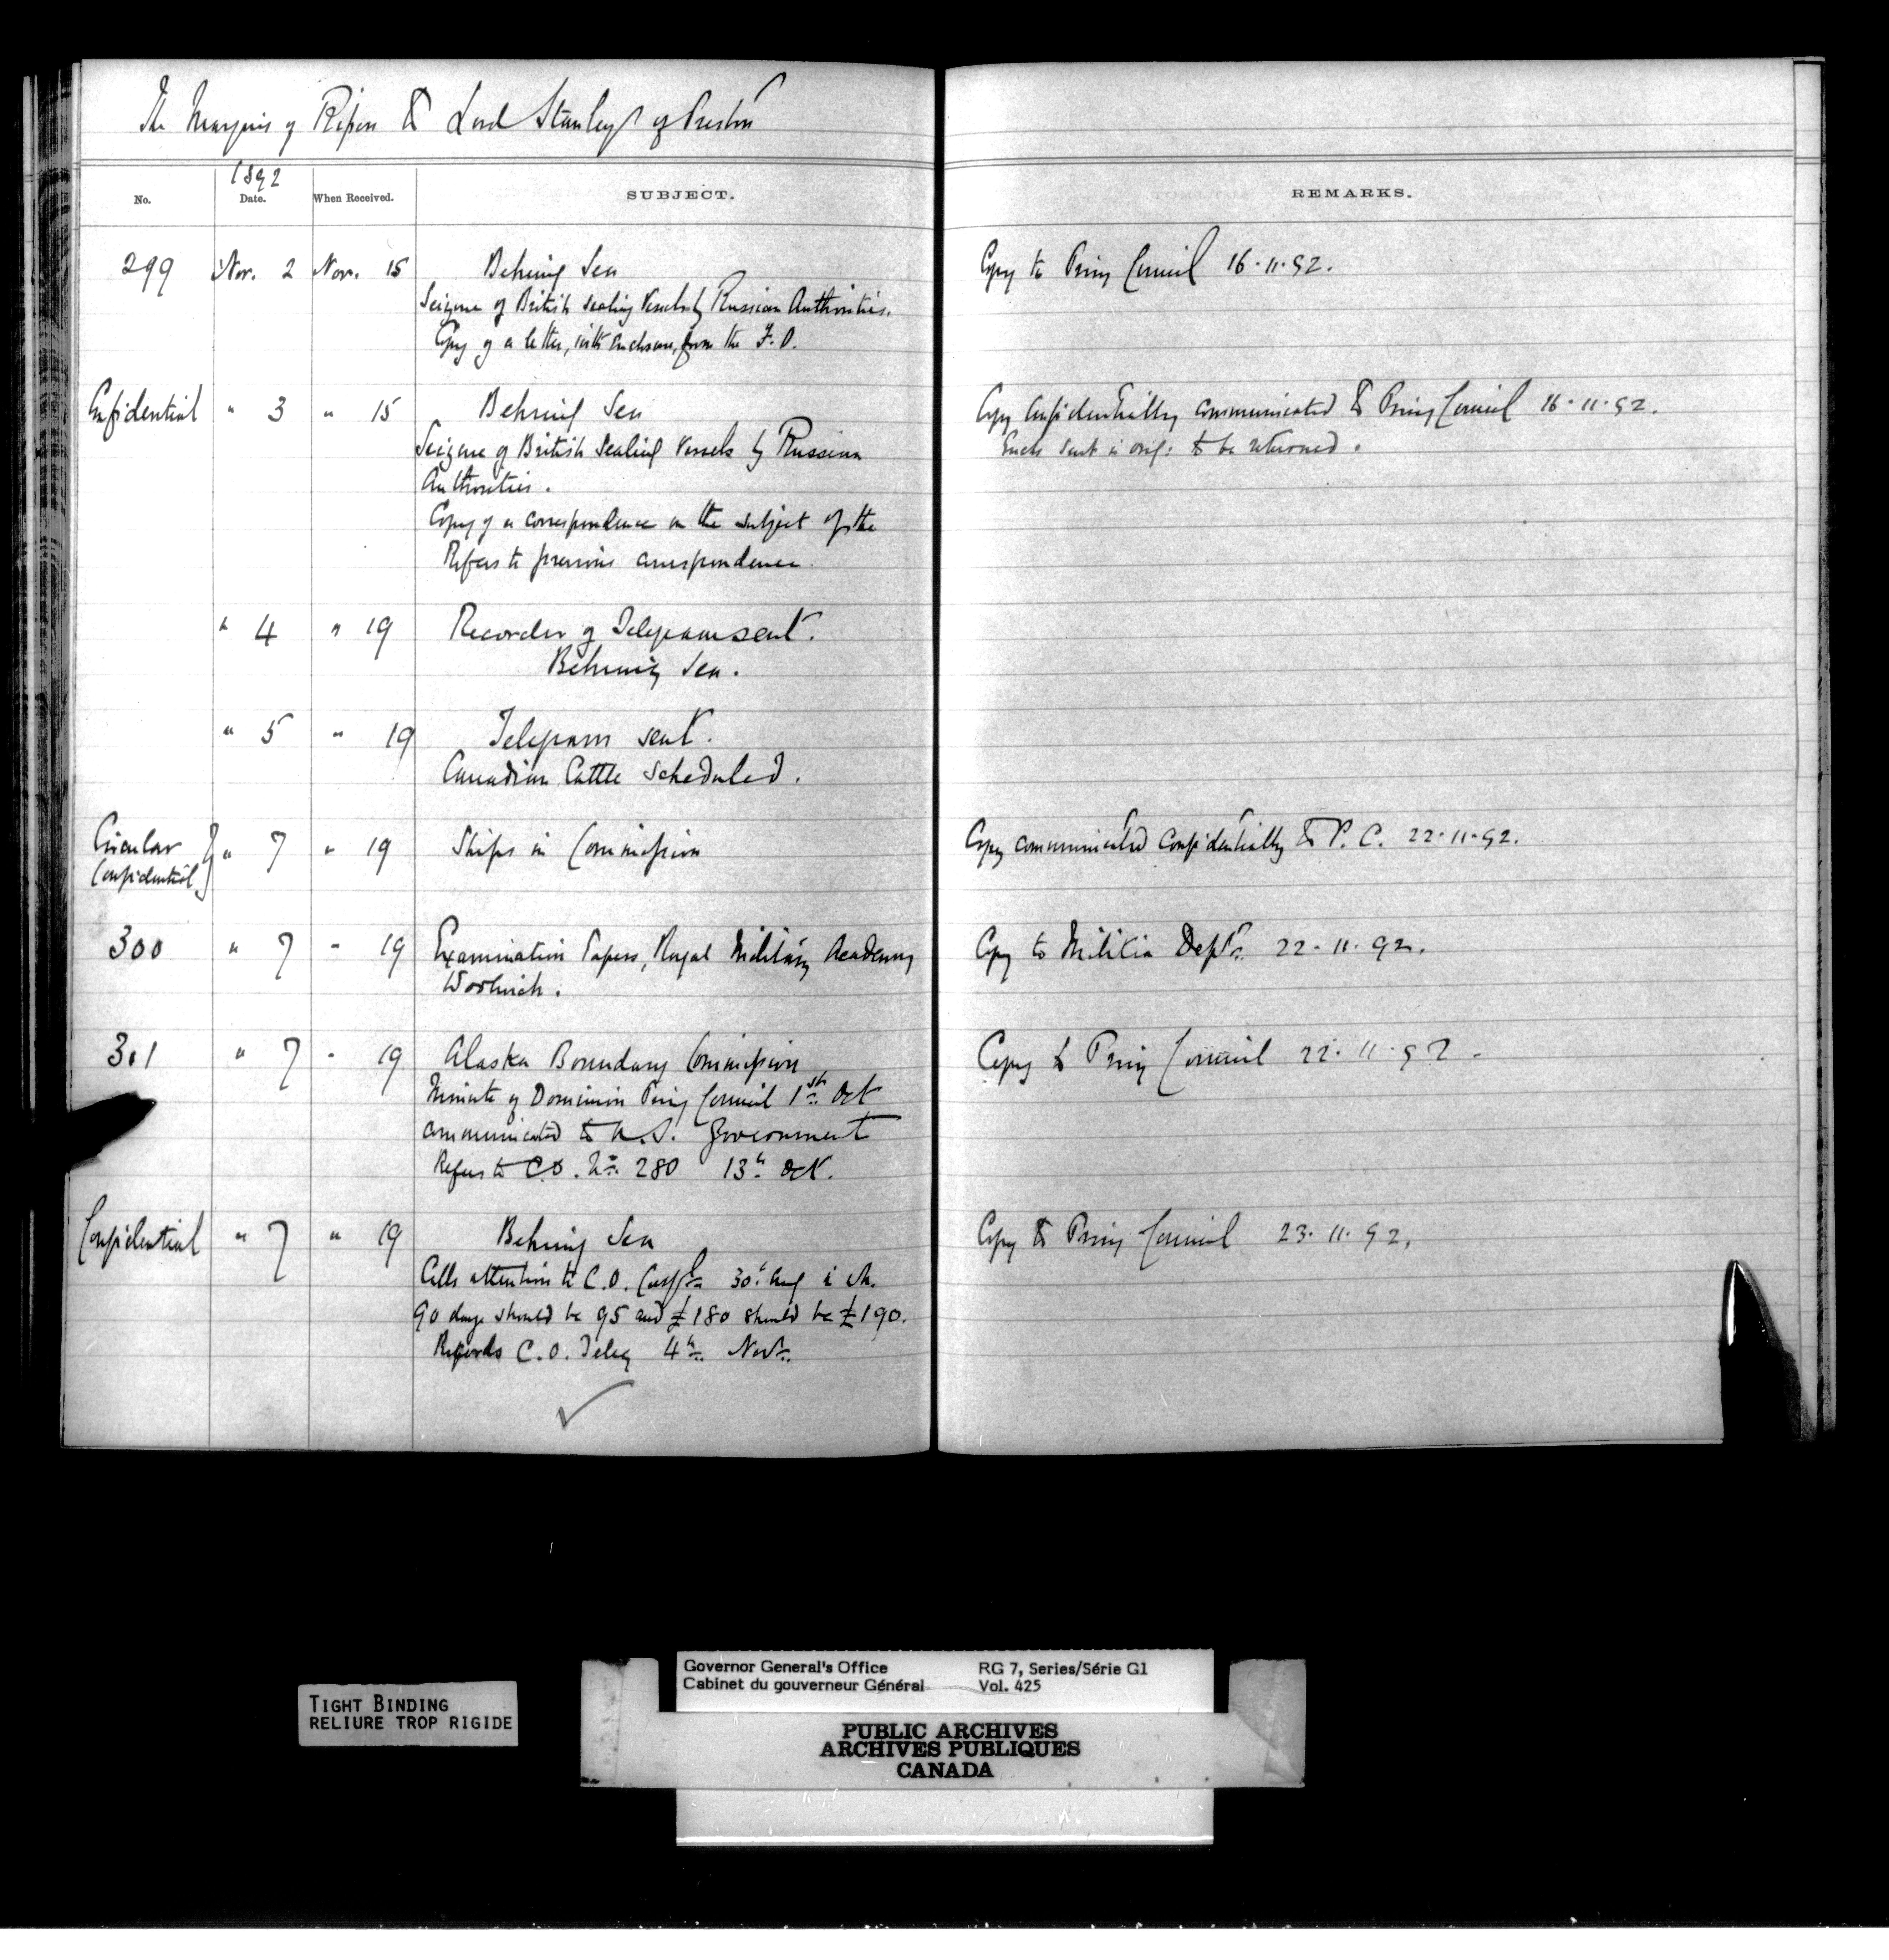 The Marquis of Ripon to Lord Stanley of Preston
1892
No. Date. When Received. SUBJECT. REMARKS.
299 Nov. 2 Nov. 15 Behring Sea Copy to Privy Council 16.11.92.
Seizure of British sealing Vessels by Russian Authorities.
Copy of a letter, with enclosure, from the F.O.
Confidential " 3 " 15 Behring Sea Copy confidentially communicated to Privy Council 16.11.92.
Seizure of British Sealing Vessels by Russian Encls sent in orig: to be returned.
Authorities.
Copy of a correspondence on the subject of the
Refers to previous correspondence.
" 4 " 19 Recorder of Telegram sent.
Behring Sea.
" 5 " 19 Telegram sent.
Canadian Cattle scheduled.
Circular } " 7 " 19 Ships in Commission Copy communicated confidentially to P.C. 22.11.92.
Confidential
300 " 7 " 19 Examination Papers, Royal Military Academy Copy to Militia Dept. 22.11.92.
Woolwich.
301 " 7 " 19 Alaska Boundary Commission Copy to Privy Council 22.11.92.
Minute of Dominion Privy Council 1st Oct
communicated to U.S. Government
Refers to C.O. No. 280 13th Oct.
Confidential " 7 " 19 Behring Sea Copy to Privy Council 23.11.92.
Calls attention to C.O. 30th Aug
90 days should be 95 and £180 should be £190.
C.O. Teleg 4th Novr.
TIGHT BINDING
RELIURE TROP RIGIDE
Governor General's Office RG 7, Series/Série G1
Cabinet du gouverneur Général Vol. 425
PUBLIC ARCHIVES
ARCHIVES PUBLIQUES
CANADA